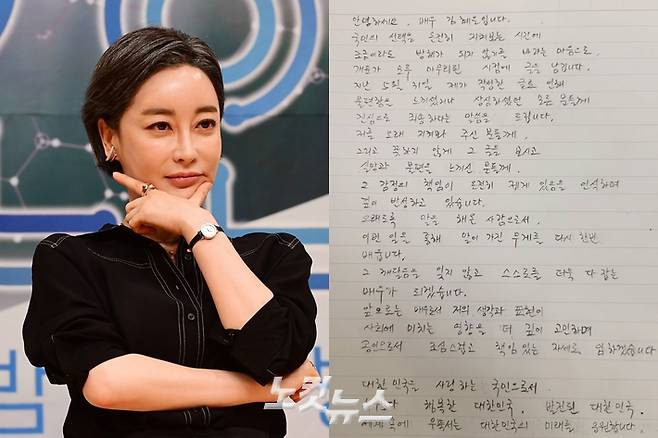 밤
안녕하세요. 배우 김혜은입니다.
국민의 선택을 온전히 지켜보는 시간에
조금이라도 방해가 되지 않기를 바라는 마음으로,
개표가 모두 마무리된 시점에 글을 남깁니다.
지난 5월 30일, 제가 작성한 글로 인해
불편함을 느끼셨거나 상심하셨던 모든 분들께
진심으로 죄송하다는 말씀을 드립니다.
저를 오래 지켜봐 주신 분들께,
그리고 뜻하지 않게 그 글을 보시고
실망과 불편을 느끼신 분들께,
그 감정의 책임이 온전히 제게 있음을 인식하며
깊이 반성하고 있습니다.
오래도록 말을 해온 사람으로서,
이번 일을 통해 말이 가진 무게를 다시 한번
배웁니다.
그 깨달음을 잊지 않고 스스로를 더욱 다잡는
배우가 되겠습니다.
앞으로는 배우로서 저의 생각과 표현이
사회에 미치는 영향을 더 깊이 고민하며
공인으로서 조심스럽고 책임 있는 자세로 임하겠습니다
대한민국을 사랑하는 국민으로서
행복한 대한민국, 발전된 대한민국,
세계 속에 우뚝서는 대한민국의 미래를 응원합니다.
노컷뉴스